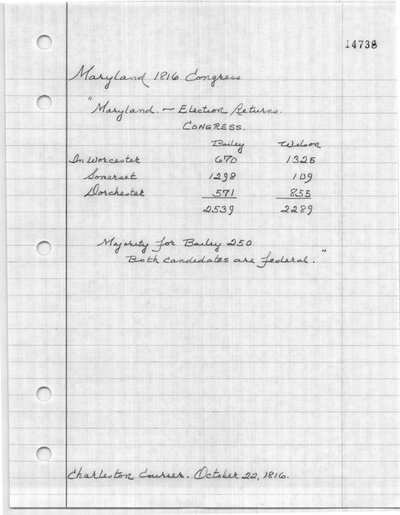 14738
Maryland 1816 Congress
"Maryland. — Election Returns.
CONGRESS.
Bailey Wilson
In Worcester 670 1325
Somerset 1298 109
Dorchester 571 855
2539 2289
Majority for Bailey 250
Both candidates are federal."
Charleston Courier. October 22, 1816.